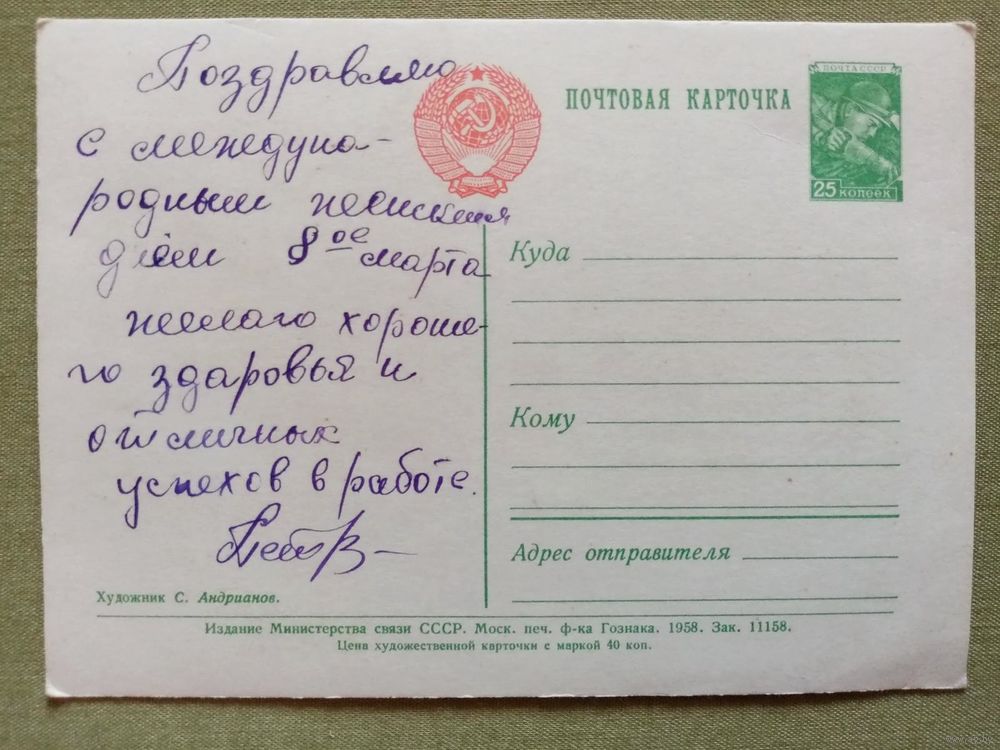 Поздравляю
с междуна-
родным женским
днём 8ое марта
желаю хороше-
го здаровья и
отличных
успехов в работе.
ПОЧТОВАЯ КАРТОЧКА
ПОЧТА СССР
25 КОПЕЕК
Куда
Кому
Адрес отправителя
Художник С. Андрианов.
Издание Министерства связи СССР. Моск. печ. ф-ка Гознака. 1958. Зак. 11158.
Цена художественной карточки с маркой 40 коп.